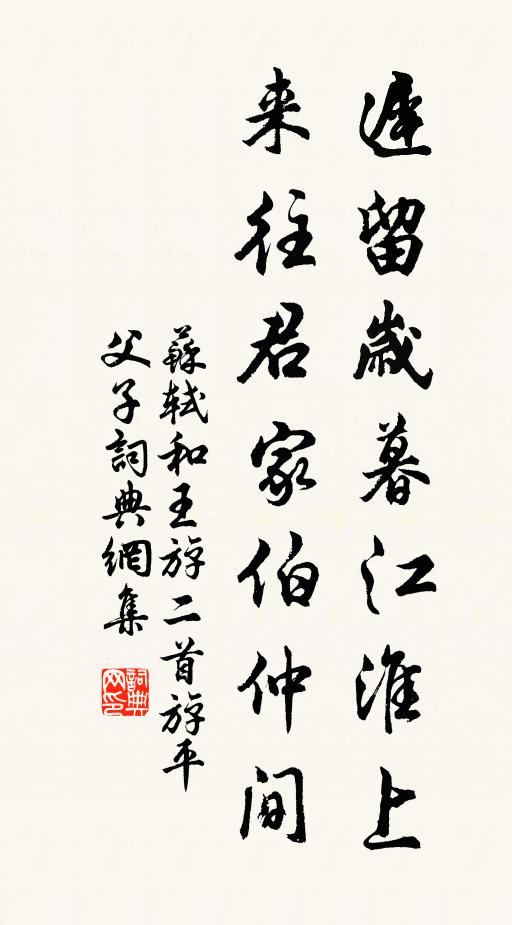 遲留歲暮江淮上
来往君家伯仲間
蘇軾和王斿二首斿平
父子詞典網集
詞典网印